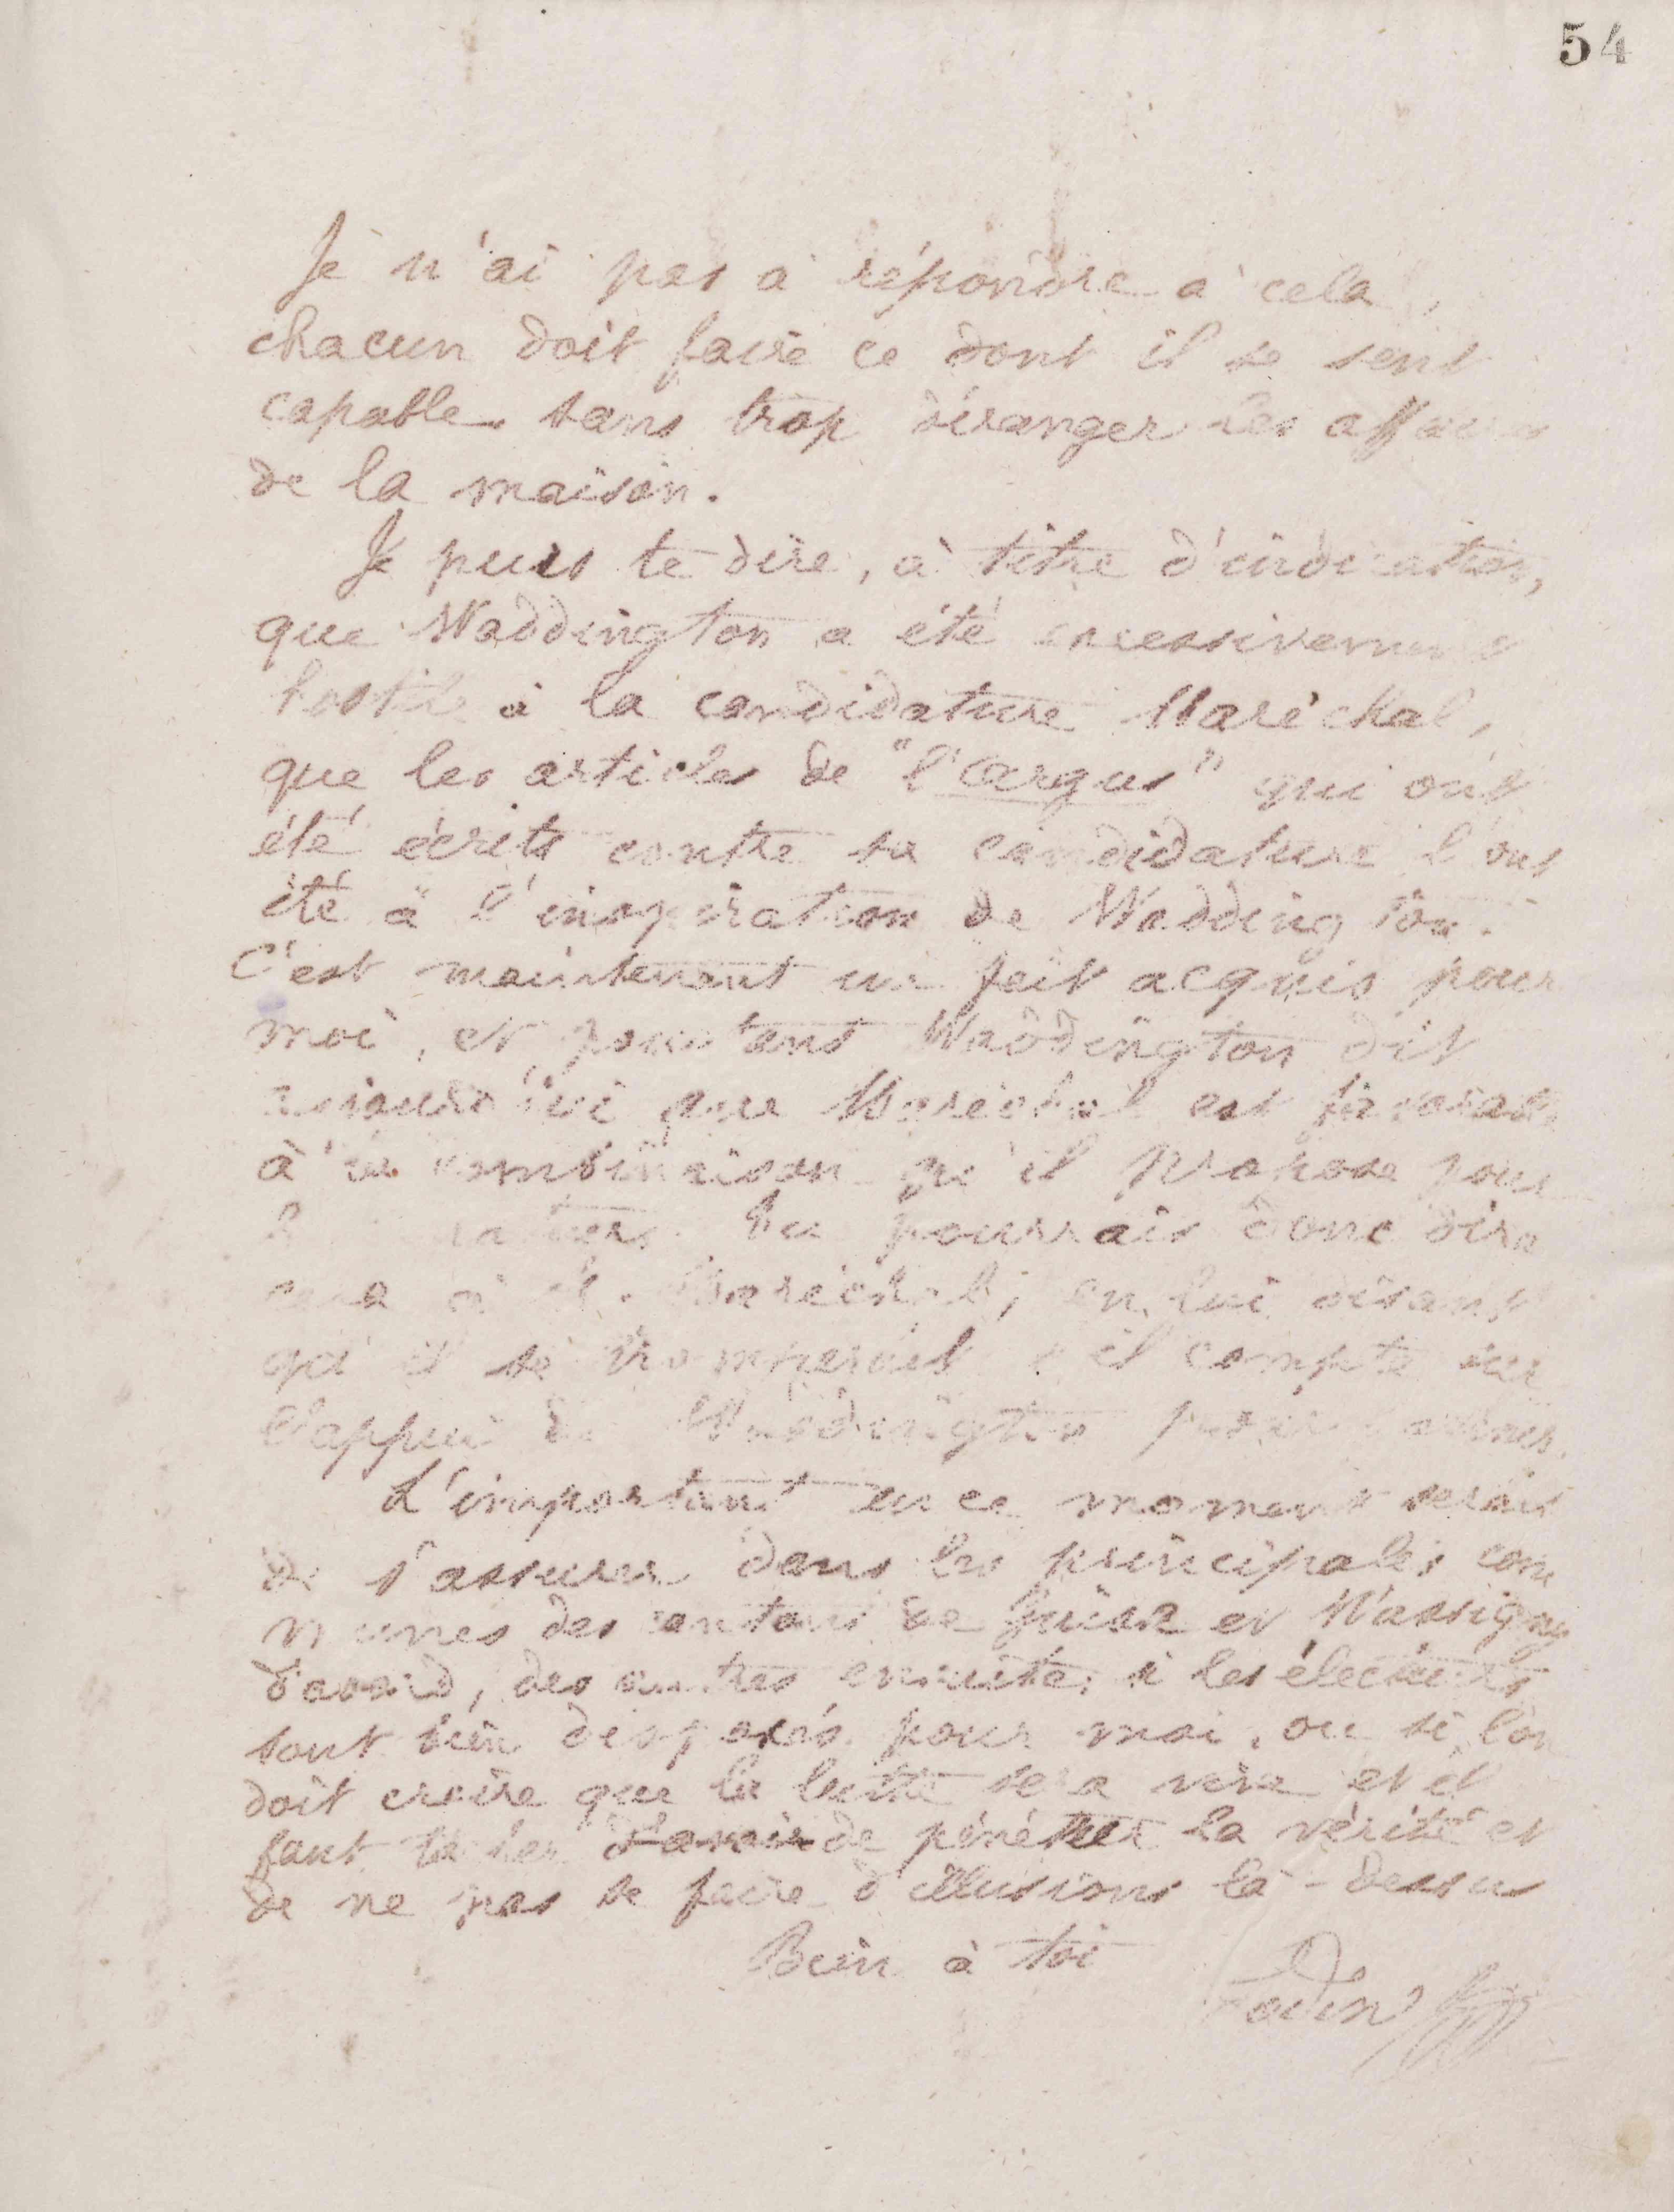 54
Je n'ai pas à répondre à cela,
chacun doit faire ce dont il se sent
capable sans trop déranger les affaires
de la maison.
Je puis te dire, à titre d'indication,
que Waddington a été excessivement
hostile à la candidature Maréchal,
que les articles de "l'Argus" qui ont
été écrits contre sa candidature l'ont
été à l'inspiration de Waddington.
C'est maintenant un fait acquis pour
moi, et pourtant Waddington dit
aujourd'hui que Maréchal est favorable
à la combinaison qu'il propose pour
Tu pourrais donc dire
cela à M. Maréchal, en lui disant
qu'il se tromperait s'il compte sur
l'appui de Waddington pour
L'important en ce moment serait
de s'assurer dans les principales com
munes des cantons de Guise et Wassigny
d'abord, des autres ensuite, si les électeurs
sont bien disposés pour moi, ou si l'on
doit croire que la lutte sera vive et il
faut tâcher d'avoir de pénétrer la vérité et
de ne pas se faire d'illusions là-dessus
Bien à toi
Godin